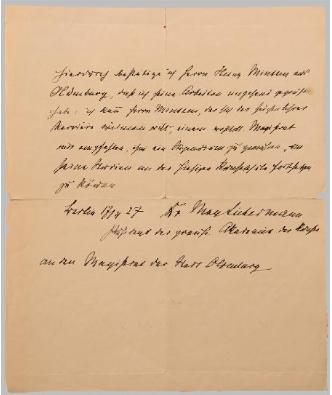 Hierdurch bestätige ich Herrn Heinz Minssen aus
Oldenburg, daß ich seine Arbeiten eingehend geprüft
habe: ich kann Herrn Minssen, der sich der
Karriere widmen will, einem Magistrat
nur empfehlen, ihm ein Stipendium zu gewähren, um
seine Studien an der hiesigen Hochschule fortsetzen
zu können
Berlin 27 Dr Max Liebermann
Präsident der preuß. Akademie der Künste
an den Magistrat der Stadt Oldenburg